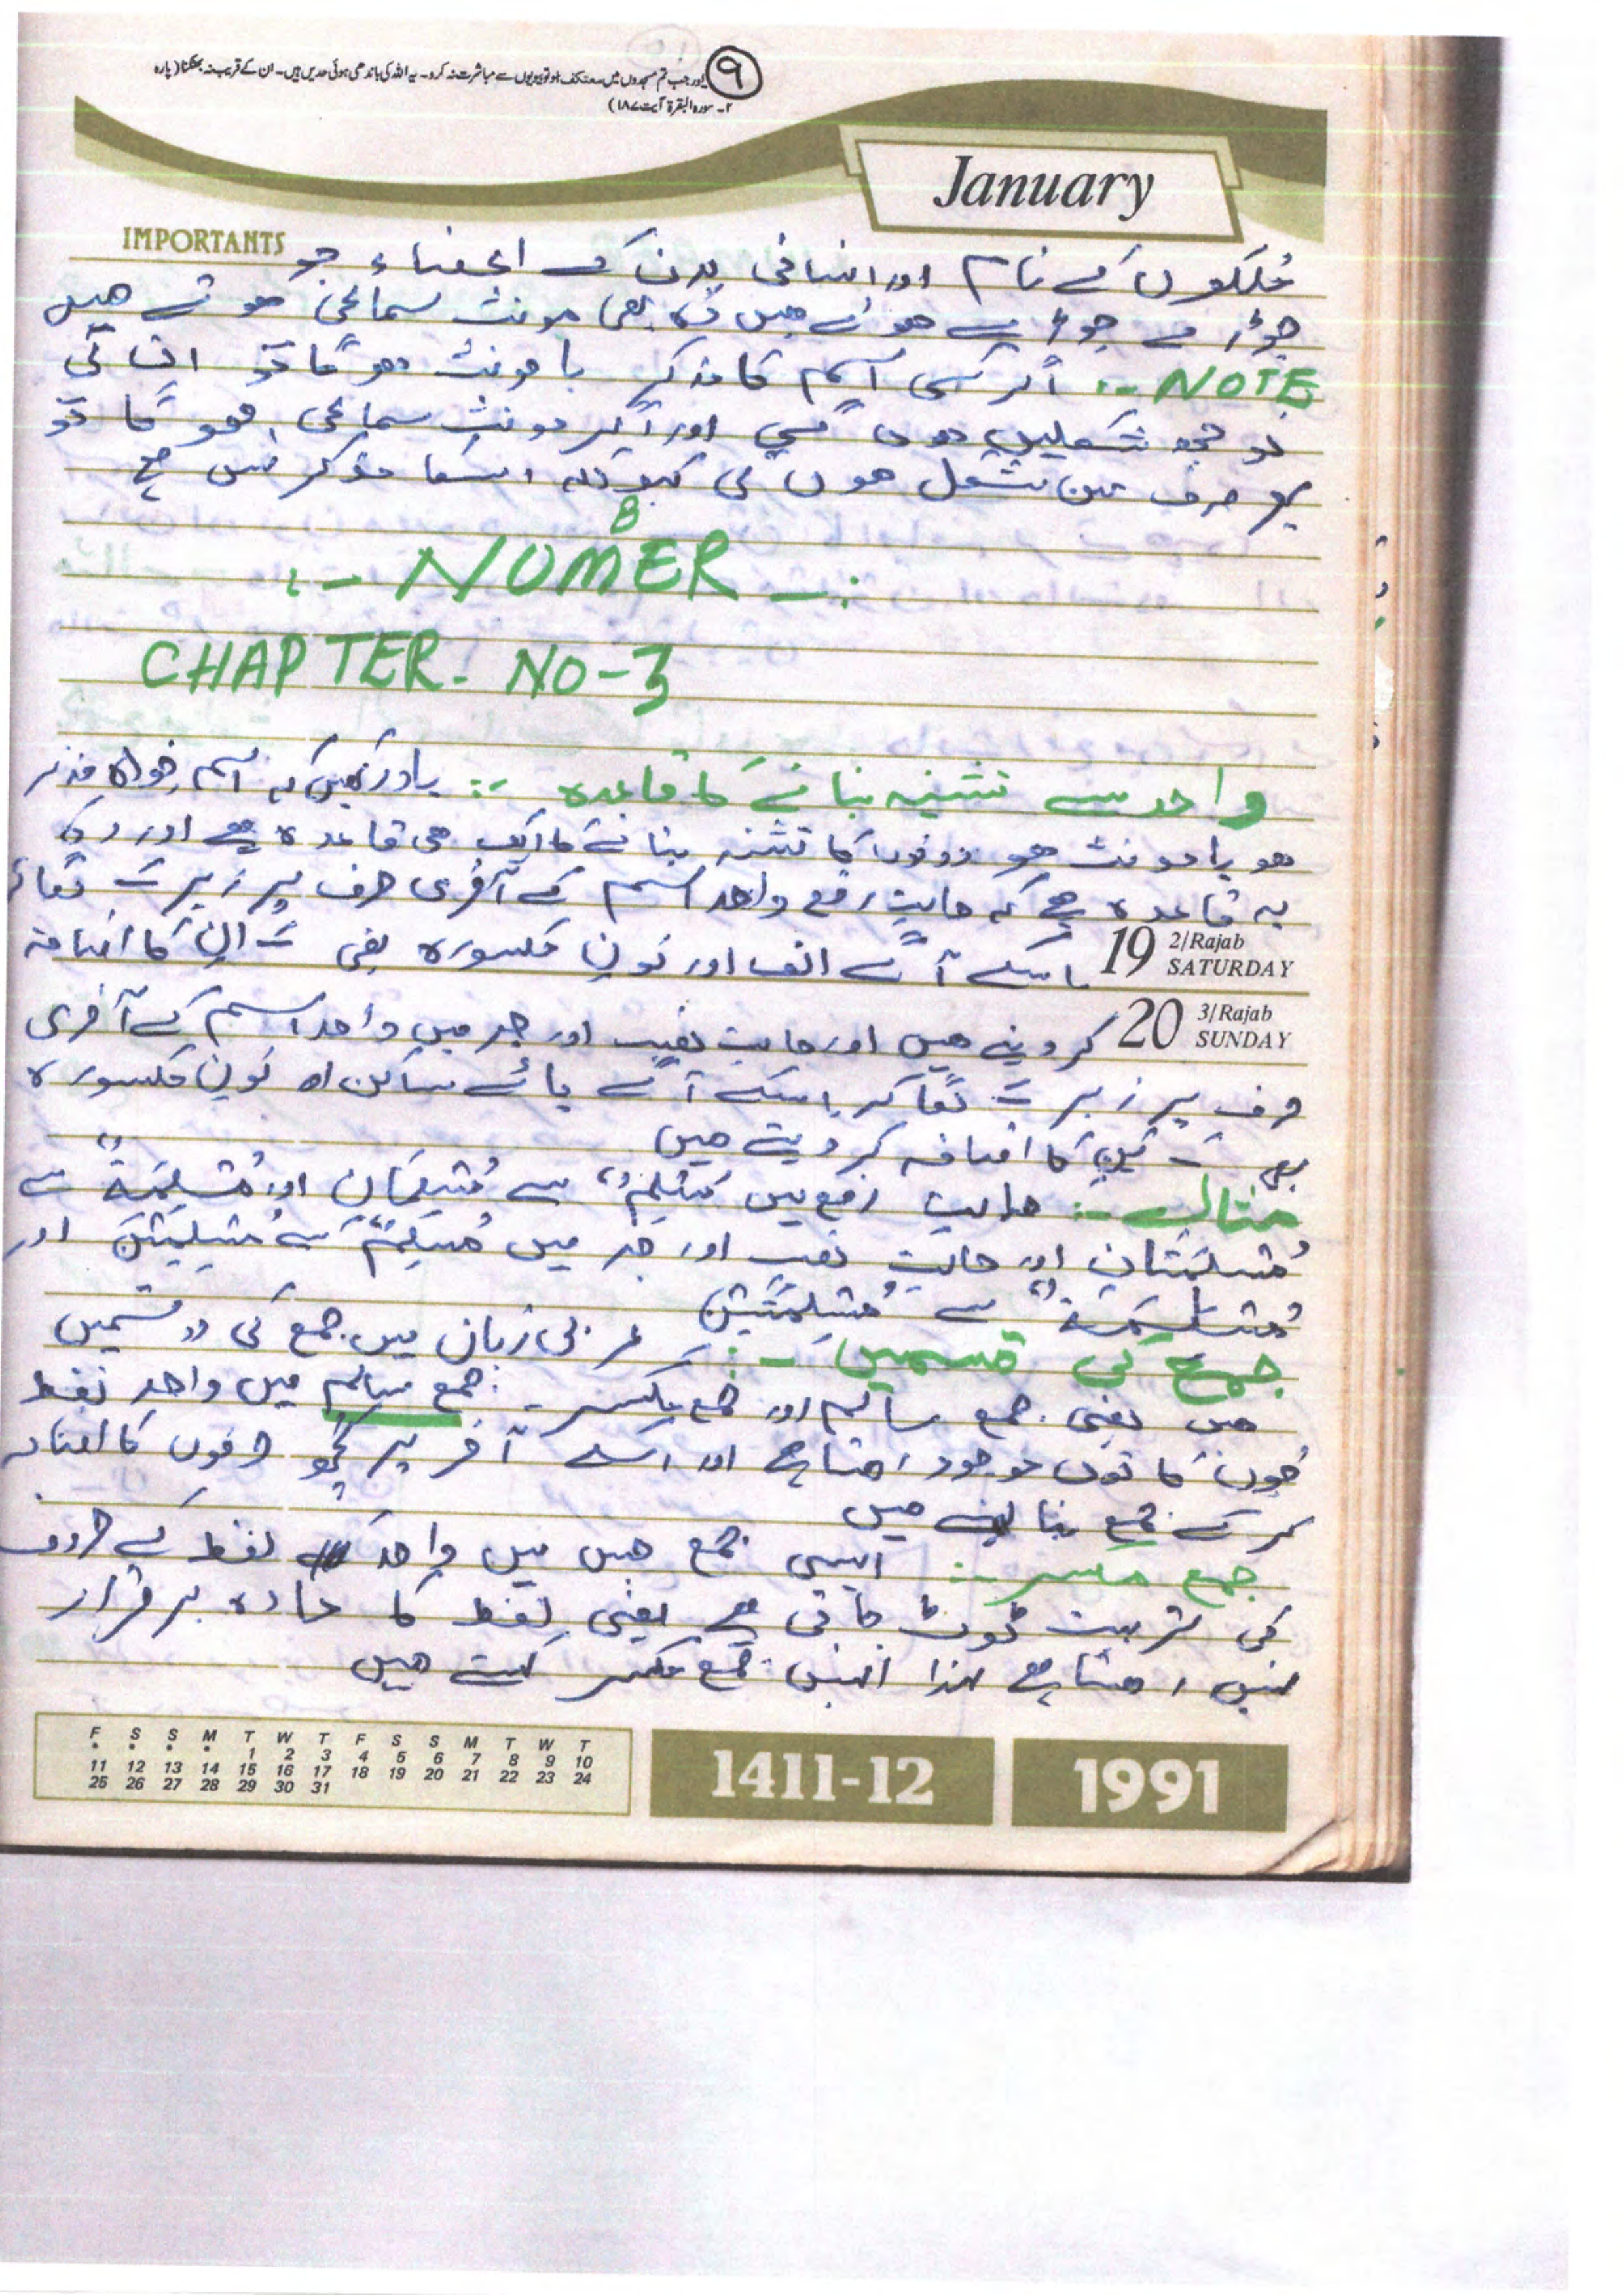 ۹
اور جب تم مسجدوں میں معتکف ہو تو بیویوں سے مباشرت نہ کرو۔ یہ اللہ کی باندھی ہوئی حدیں ہیں۔ ان کے قریب نہ پھٹکنا (پارہ
۲۔ سورہ البقرۃ آیت ۱۸۷)
January
IMPORTANTS
مُلکوں کے نام اور انسانی بدن کے اعضاء جو
جوڑے جوڑے ہوتے ہیں وہ بھی مونث سماعی ہوتے ہیں
NOTE :- اگر کسی اسم کا مذکر یا مونث ہو گا تو ان کی
تو چھ شکلیں ہوں گی اور اگر مونث سماعی ہو گا تو
پھر صرف تین شکل ہوں گی کیونکہ اسکا مذکر نہیں ہے
B
:- NUMER -:
CHAPTER - NO-3
واحد سے تثنیہ بنانے کا قاعدہ :- یاد رکھیں کہ اسم خواہ مذکر
ہو یا مونث ہو دونوں کا تثنیہ بنانے کا ایک ہی قاعدہ ہے اور وہ
یہ قاعدہ ہے کہ حالتِ رفع واحد اسم کے آخری حرف پر زبر ـَ لگا کر
19 2/Rajab SATURDAY
اسکے آگے الف اور نونِ مکسورہ یعنی ـَ انِ کا اضافہ
20 3/Rajab SUNDAY
کر دیتے ہیں اور حالت نصب اور جر میں واحد اسم کے آخری
حرف پر زبر ـَ لگا کر اسکے آگے یائے ساکن اور نونِ مکسورہ
ـَ یْنِ کا اضافہ کر دیتے ہیں
مثال :- حالت رفع میں مُسْلِمٌ سے مُسْلِمَانِ اور مُسْلِمَةٌ سے
مُسْلِمَتَانِ اور حالت نصب اور جر میں مُسْلِمٌ سے مُسْلِمَیْنِ اور
مُسْلِمَةٌ سے مُسْلِمَتَیْنِ
جمع کی قسمیں :- عربی زبان میں جمع کی دو قسمیں
ہیں یعنی جمع سالم اور جمع مکسر - جمع سالم میں واحد لفظ
جوں کا توں موجود رہتا ہے اور اسکے آخر پر کچھ حرفوں کا اضافہ
کر کے جمع بنا لیتے ہیں
جمع مکسر :- ایسی جمع جس میں واحد کے لفظ کے حروف
کی ترتیب ٹوٹ جاتی ہے یعنی لفظ کا مادہ برقرار
نہیں رہتا ہے لہذا انہیں جمع مکسر کہتے ہیں
F S S M T W T F S S M T W T
* * * * 1 2 3 4 5 6 7 8 9 10
11 12 13 14 15 16 17 18 19 20 21 22 23 24
25 26 27 28 29 30 31
1411-12
1991